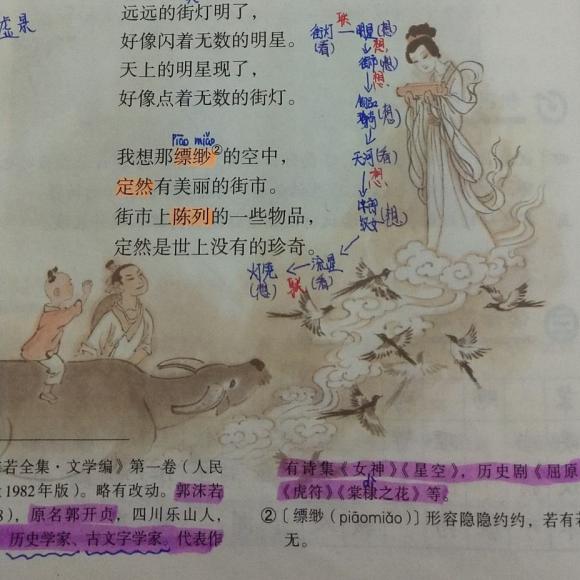 远远的街灯明了，
好像闪着无数的明星。
天上的明星现了，
好像点着无数的街灯。
piāo miǎo
我想那缥缈②的空中，
定然有美丽的街市。
街市上陈列的一些物品，
定然是世上没有的珍奇。
虚景
街灯 联 明星(想)
(看)
想
街市(想)
想
物品
珍奇(想)
天河(看)
想
牛郎
织女(想)
流星
(看)
联
灯笼
(想)
若全集·文学编》第一卷（人民
1982年版）。略有改动。郭沫若
8），原名郭开贞，四川乐山人，
历史学家、古文字学家。代表作
有诗集《女神》《星空》，历史剧《屈原
dì
《虎符》《棠棣之花》等。
②〔缥缈（piāomiǎo）〕形容隐隐约约，若有若
无。